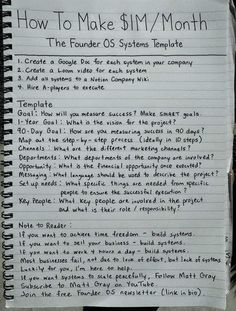 How To Make $1M/Month
The Founder OS Systems Template
1. Create a Google Doc for each system in your company
2. Create a Loom video for each system
3. Add all systems to a Notion Company Wiki
4. Hire A-players to execute
Template
Goal: How will you measure success? Make SMART goals.
1-Year Goal: What is the vision for the project?
90-Day Goal: How are you measuring success in 90 days?
Map out the step-by-step process (ideally in 10 steps)
Channels: What are the different marketing channels?
Departments: What departments of the company are involved?
Opportunity: What is the financial opportunity once executed?
Messaging: What language should be used to describe the project?
Set up needs: What specific things are needed from specific
people to ensure the successful execution?
Key People: What key people are involved in the project
and what is their role / responsibility?
Note to Reader:
If you want to achieve time freedom - build systems.
If you want to sell your business - build systems.
If you want to work 4 hours a day - build systems.
Most businesses fail, not due to lack of effort, but lack of systems.
Luckily for you, I'm here to help.
If you want to scale peacefully, Follow Matt Gray
Subscribe to Matt Gray on YouTube.
Join the free Founder OS newsletter (link in bio).